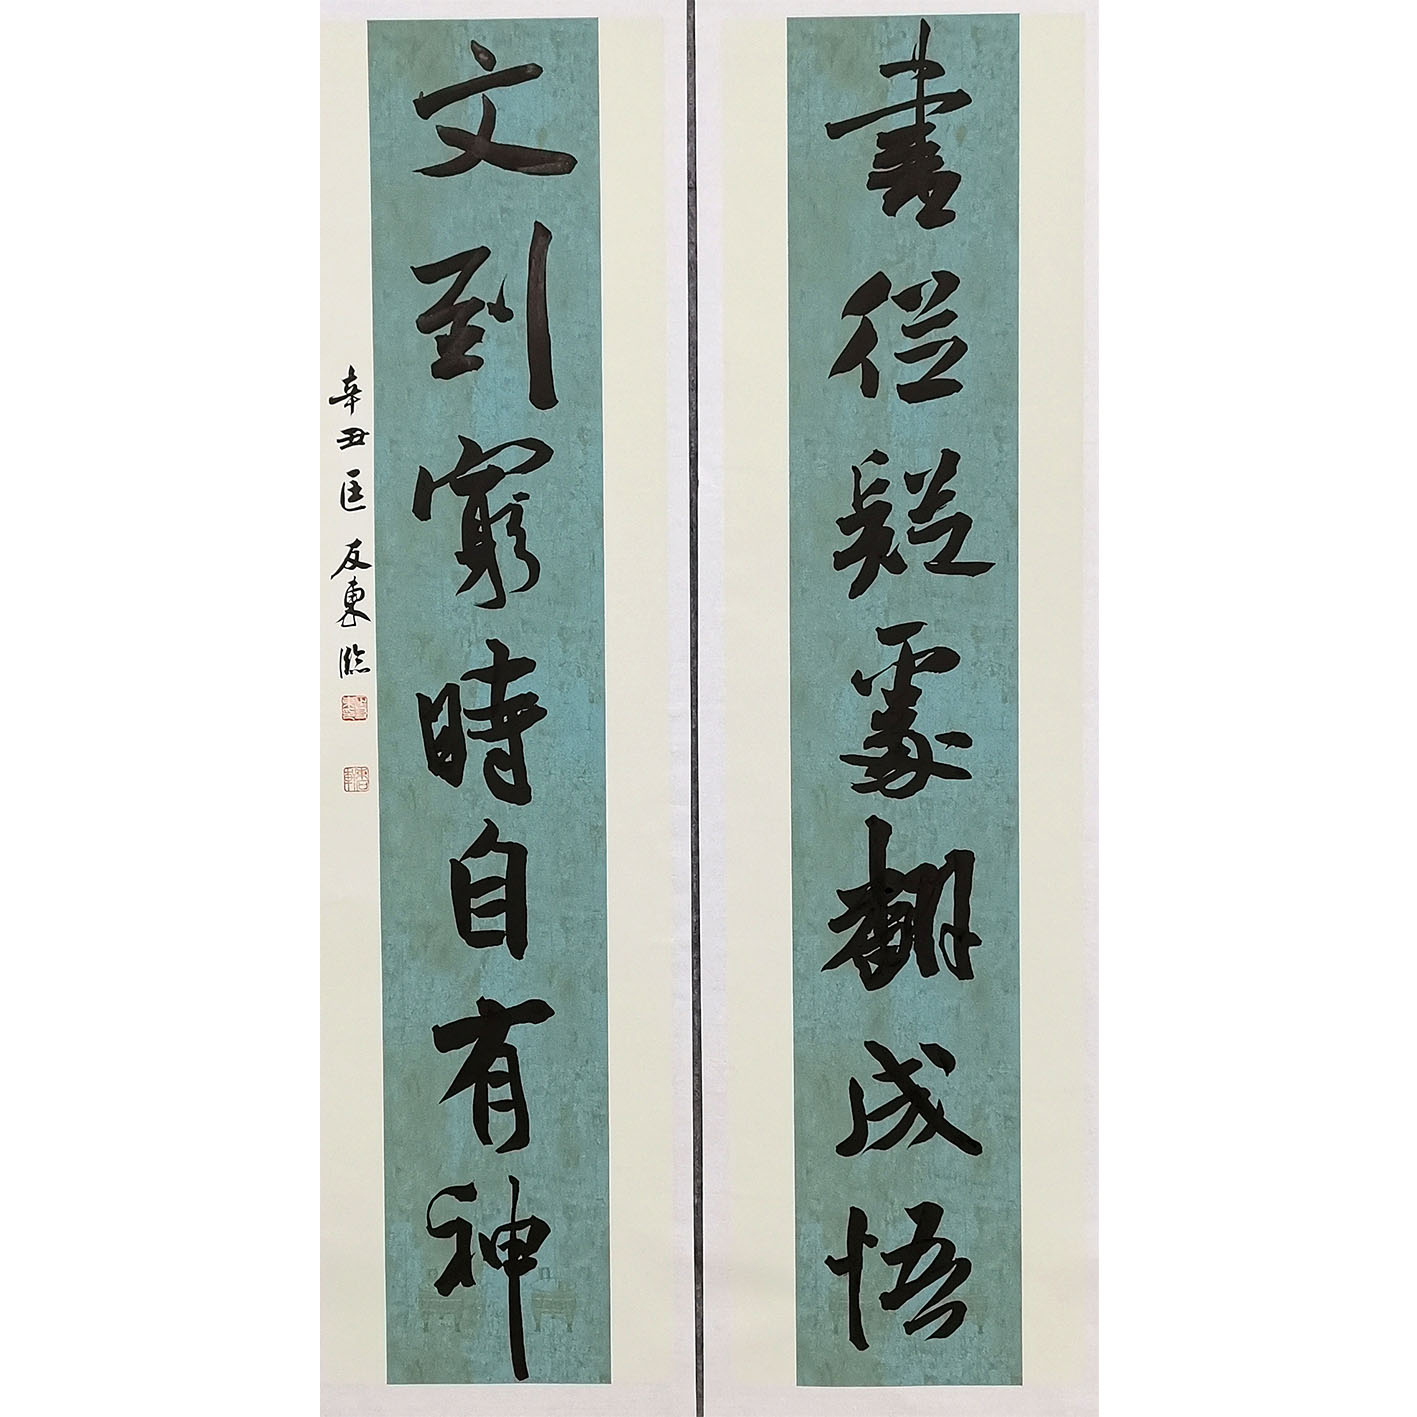 書從疑處翻成悟
文到窮時自有神
辛丑匡友東臨